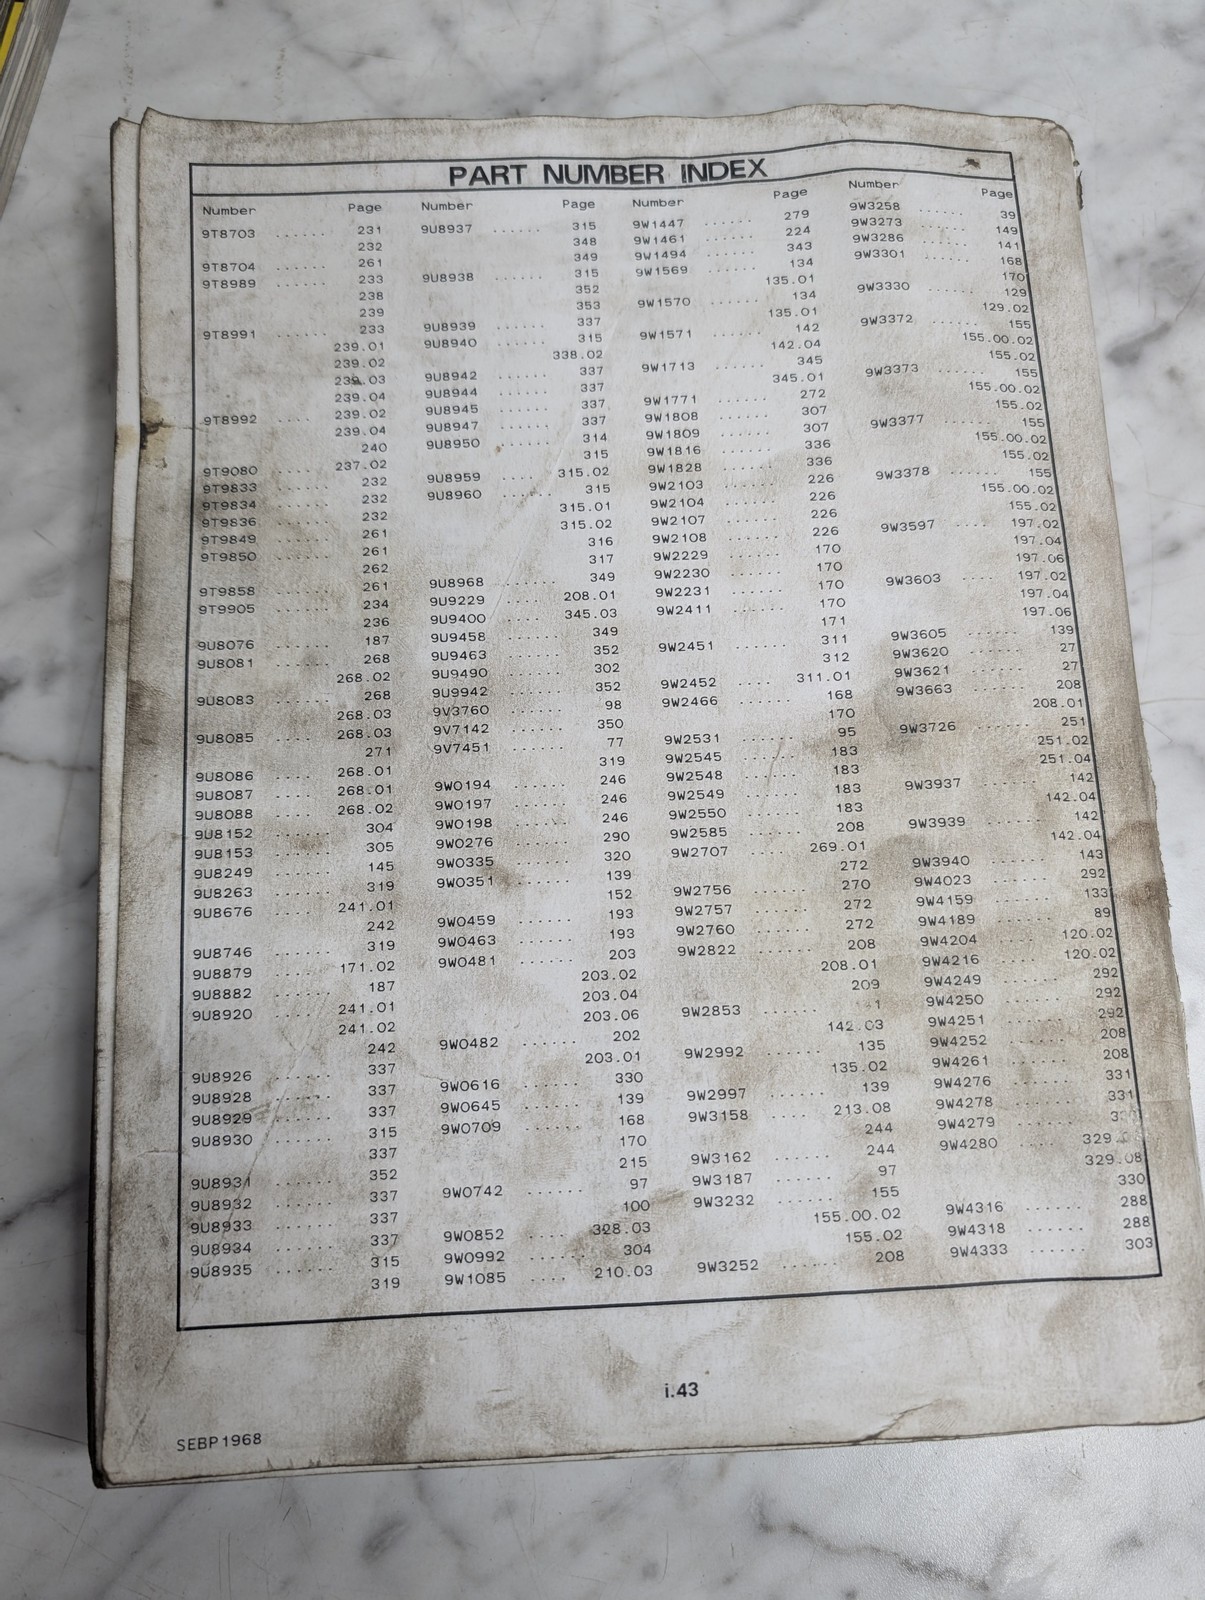 PART NUMBER INDEX
Number Page
9T8703 ...... 231
232
9T8704 ...... 261
9T8989 ...... 233
238
239
9T8991 ...... 233
239.01
239.02
239.03
239.04
9T8992 .... 239.02
239.04
240
9T9080 .... 237.02
9T9833 ...... 232
9T9834 ...... 232
9T9836 ...... 232
9T9849 ...... 261
9T9850 ...... 261
262
9T9858 ...... 261
9T9905 ...... 234
236
9U8076 ...... 187
9U8081 ...... 268
268.02
9U8083 ...... 268
268.03
9U8085 .... 268.03
271
9U8086 .... 268.01
9U8087 .... 268.01
9U8088 .... 268.02
9U8152 ...... 304
9U8153 ...... 305
9U8249 ...... 145
9U8263 ...... 319
9U8676 .... 241.01
242
9U8746 ...... 319
9U8879 .... 171.02
9U8882 ...... 187
9U8920 .... 241.01
241.02
242
9U8926 ...... 337
9U8928 ...... 337
9U8929 ...... 337
9U8930 ...... 315
337
9U8931 ...... 352
9U8932 ...... 337
9U8933 ...... 337
9U8934 ...... 337
9U8935 ...... 315
319
Number Page
9U8937 ...... 315
348
349
9U8938 ...... 315
352
353
9U8939 ...... 337
9U8940 ...... 315
338.02
9U8942 ...... 337
9U8944 ...... 337
9U8945 ...... 337
9U8947 ...... 337
9U8950 ...... 314
315
9U8959 .... 315.02
9U8960 ...... 315
315.01
315.02
316
317
9U8968 ...... 349
9U9229 .... 208.01
9U9400 .... 345.03
9U9458 ...... 349
9U9463 ...... 352
9U9490 ...... 302
9U9942 ...... 352
9V3760 ...... 98
9V7142 ...... 350
9V7451 ...... 77
319
9W0194 ...... 246
9W0197 ...... 246
9W0198 ...... 246
9W0276 ...... 290
9W0335 ...... 320
9W0351 ...... 139
152
9W0459 ...... 193
9W0463 ...... 193
9W0481 ...... 203
203.02
203.04
203.06
9W0482 ...... 202
203.01
9W0616 ...... 330
9W0645 ...... 139
9W0709 ...... 168
170
215
9W0742 ...... 97
100
9W0852 .... 328.03
9W0992 ...... 304
9W1085 .... 210.03
Number Page
9W1447 ...... 279
9W1461 ...... 224
9W1494 ...... 343
9W1569 ...... 134
135.01
9W1570 ...... 134
135.01
9W1571 ...... 142
142.04
9W1713 ...... 345
345.01
9W1771 ...... 272
9W1808 ...... 307
9W1809 ...... 307
9W1816 ...... 336
9W1828 ...... 336
9W2103 ...... 226
9W2104 ...... 226
9W2107 ...... 226
9W2108 ...... 226
9W2229 ...... 170
9W2230 ...... 170
9W2231 ...... 170
9W2411 ...... 170
171
9W2451 ...... 311
312
9W2452 .... 311.01
9W2466 ...... 168
170
9W2531 ...... 95
9W2545 ...... 183
9W2548 ...... 183
9W2549 ...... 183
9W2550 ...... 183
9W2585 ...... 208
9W2707 .... 269.01
272
9W2756 ...... 270
9W2757 ...... 272
9W2760 ...... 272
9W2822 ...... 208
208.01
209
9W2853 ......
142.03
9W2992 ...... 135
135.02
9W2997 ...... 139
9W3158 .... 213.08
244
9W3162 ...... 244
9W3187 ...... 97
9W3232 ...... 155
155.00.02
155.02
9W3252 ...... 208
Number Page
9W3258 ...... 39
9W3273 ...... 149
9W3286 ...... 141
9W3301 ...... 168
170
9W3330 ...... 129
129.02
9W3372 ...... 155
155.00.02
155.02
9W3373 ...... 155
155.00.02
155.02
9W3377 ...... 155
155.00.02
155.02
9W3378 ...... 155
155.00.02
155.02
9W3597 .... 197.02
197.04
197.06
9W3603 .... 197.02
197.04
197.06
9W3605 ...... 139
9W3620 ...... 27
9W3621 ...... 27
9W3663 ...... 208
208.01
9W3726 ...... 251
251.02
251.04
9W3937 ...... 142
142.04
9W3939 ...... 142
142.04
9W3940 ...... 143
9W4023 ...... 292
9W4159 ...... 133
9W4189 ...... 89
9W4204 .... 120.02
9W4216 .... 120.02
9W4249 ...... 292
9W4250 ...... 292
9W4251 ...... 292
9W4252 ...... 208
9W4261 ...... 208
9W4276 ...... 331
9W4278 ...... 331
9W4279 ......
9W4280 ....
329.08
330
9W4316 ...... 288
9W4318 ...... 288
9W4333 ...... 303
i.43
SEBP1968